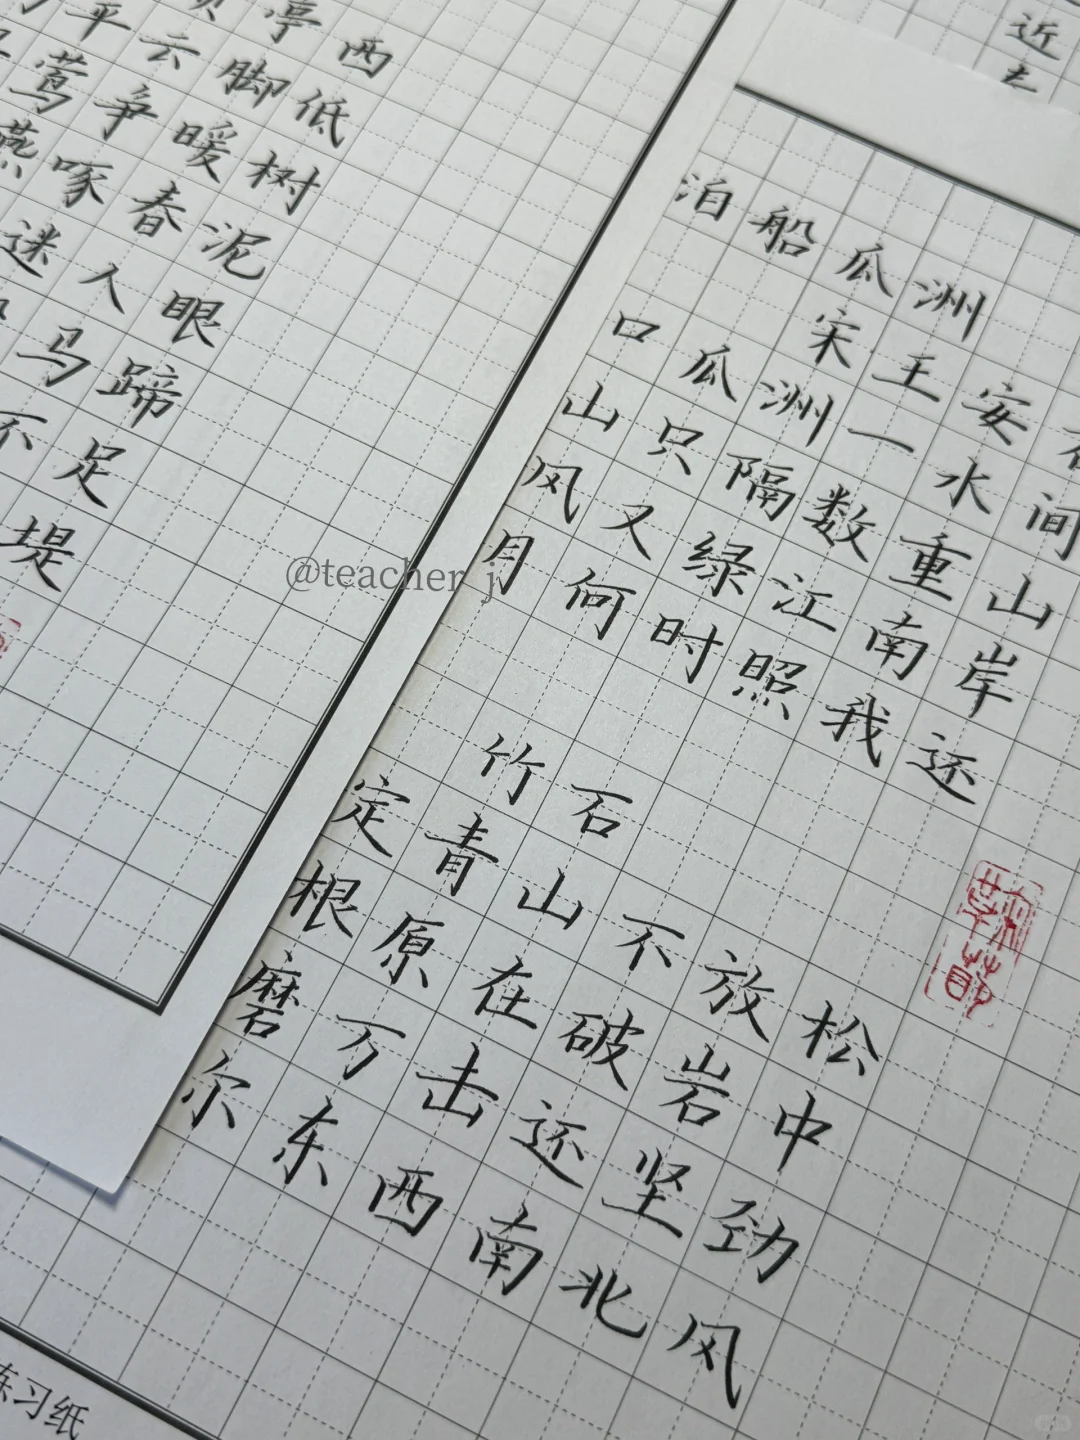 亭西
平云脚低
莺争暖树
燕啄春泥
迷人眼
马蹄
不足
堤
近
泊船瓜洲
宋王安
口瓜洲一水间
山只隔数重山
风又绿江南岸
月何时照我还
竹石
定青山不放松
根原在破岩中
磨万击还坚劲
尔东西南北风
@teacher j
习纸